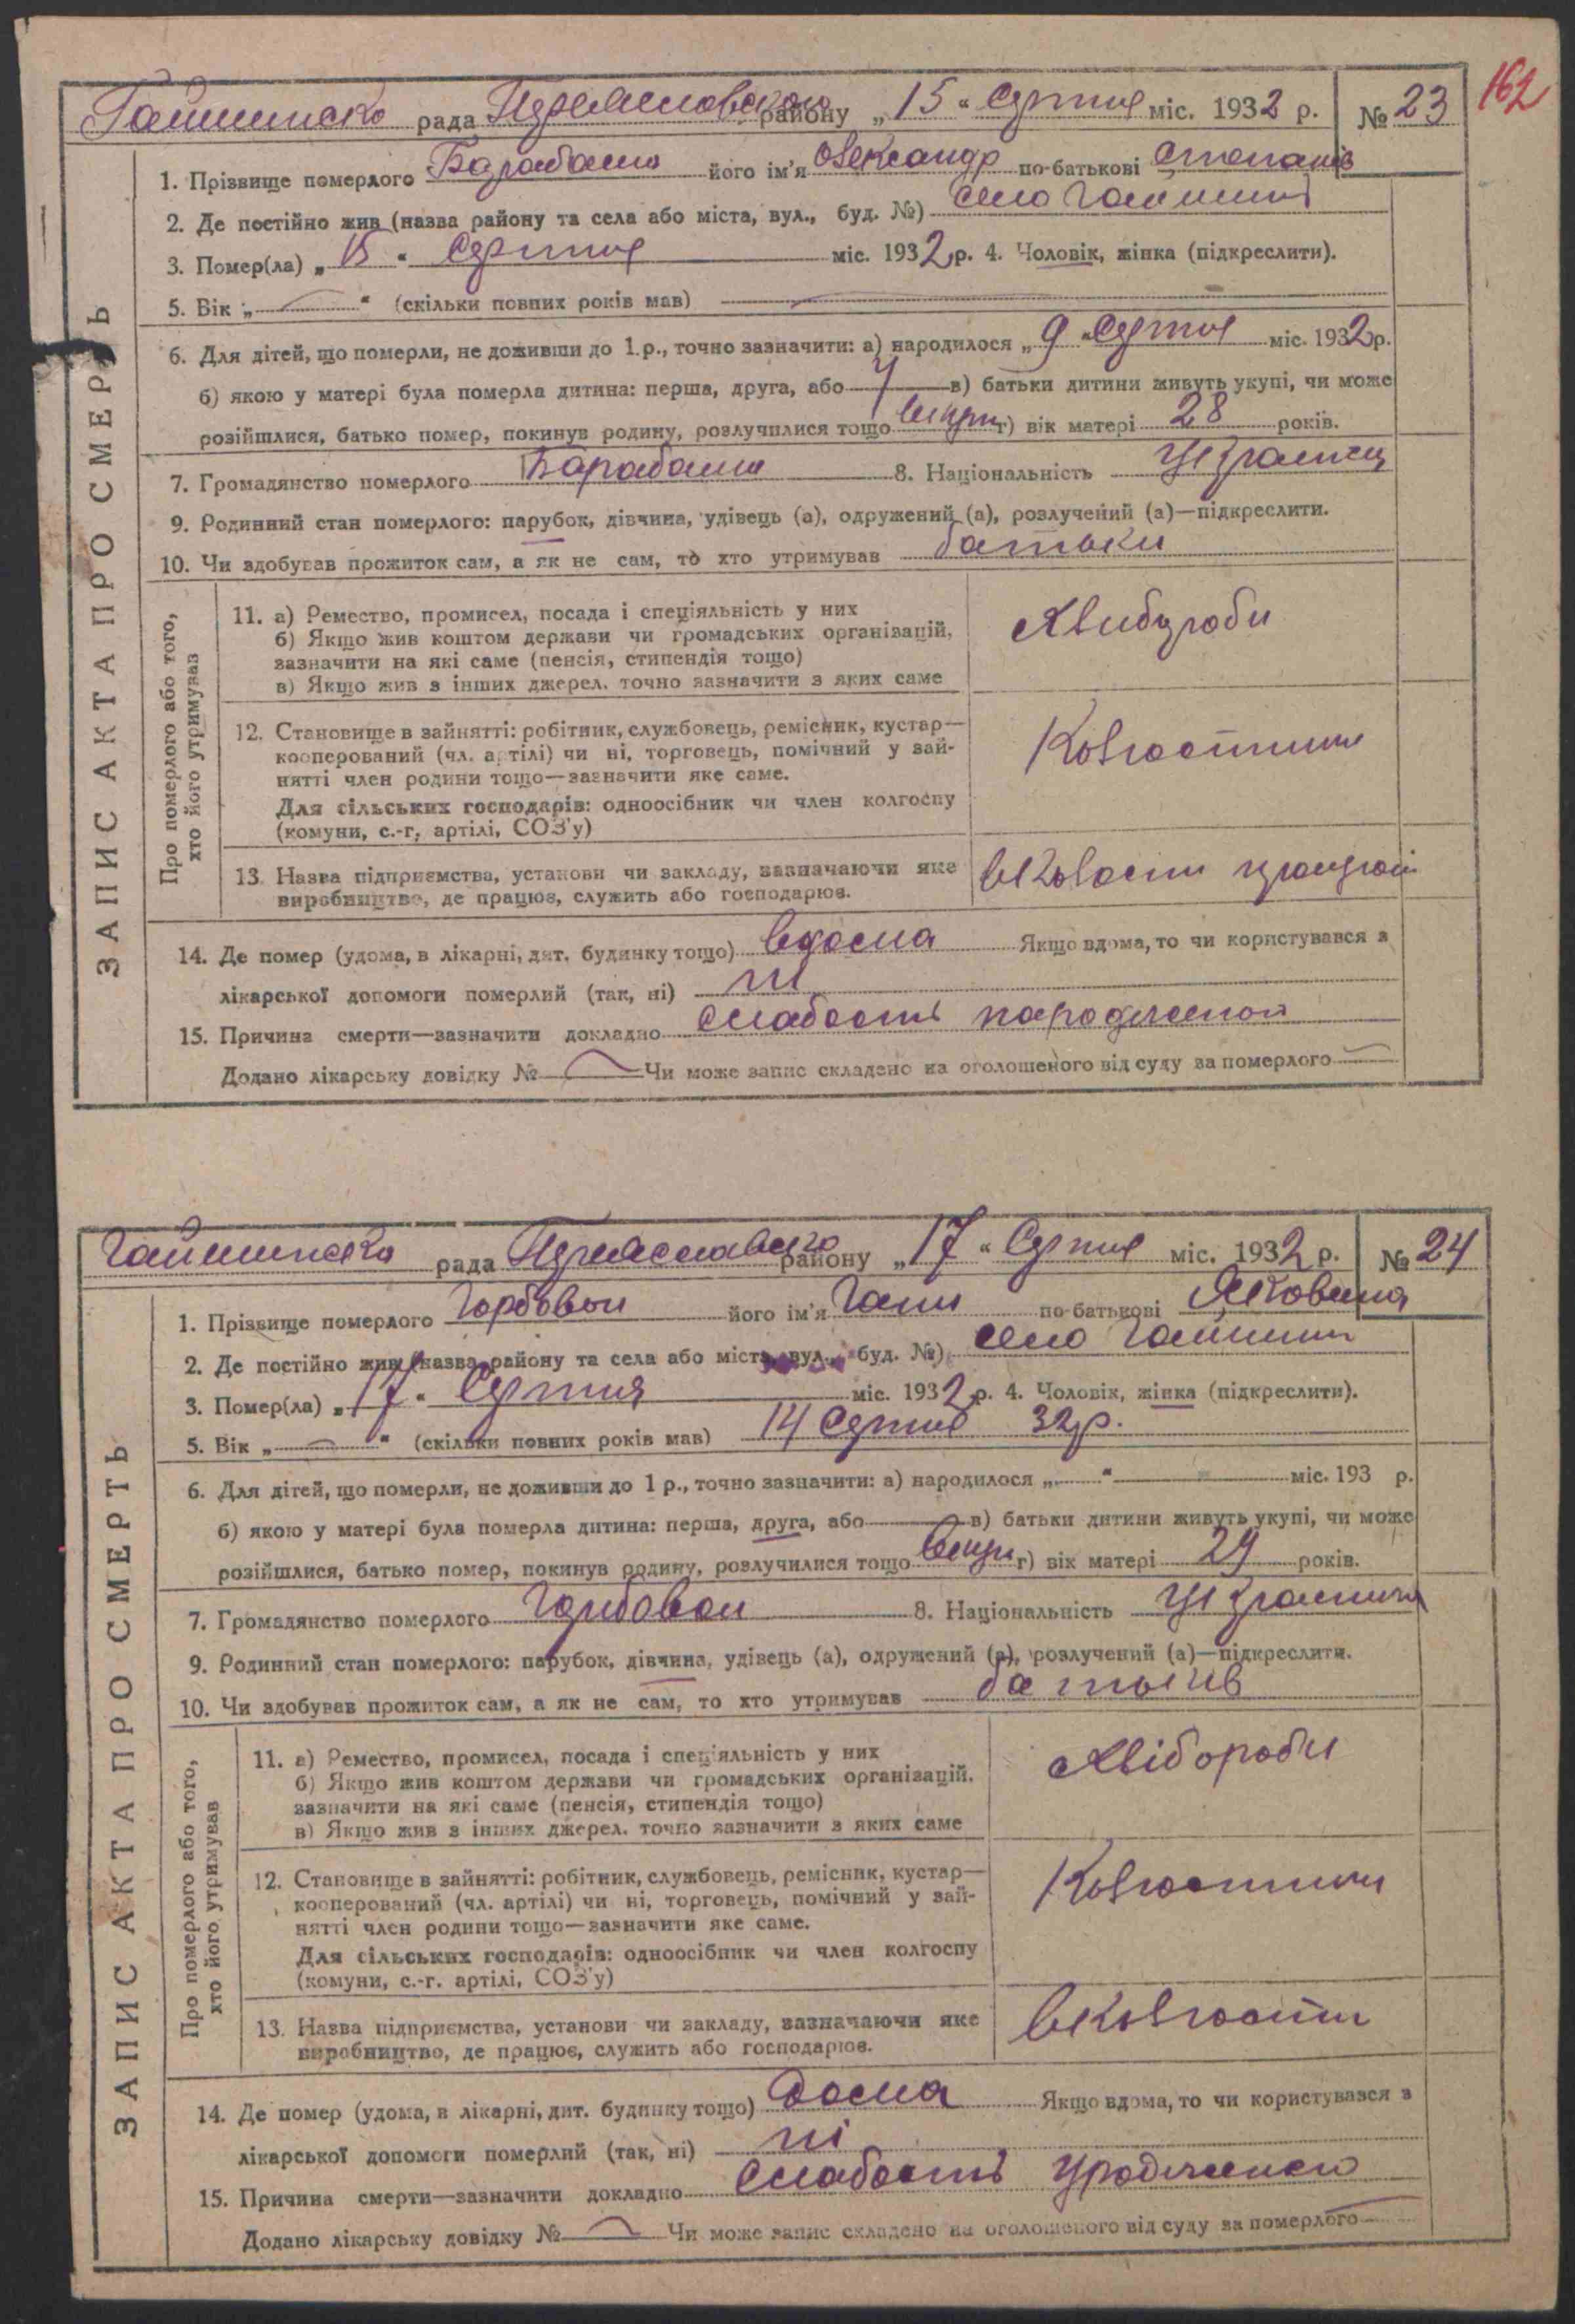 162
Гайшинсько рада Переяславського району „15“ Серпня міс. 1932 р. № 23
ЗАПИС АКТА ПРО СМЕРТЬ
1. Прізвище померлого Барабаш його ім’я Олександр по-батькові Степанів
2. Де постійно жив (назва району та села або міста, вул., буд. №) село Гайшин
3. Помер(ла) „15“ Серпня міс. 1932 р. 4. Чоловік, жінка (підкреслити).
5. Вік „—“ (скільки повних років мав) —
6. Для дітей, що померли, не доживши до 1 р., точно зазначити: а) народилося „9“ Серпня міс. 1932 р.
б) якою у матері була померла дитина: перша, друга, або в) батьки дитини живуть укупі, чи може
розійшлися, батько помер, покинув родину, розлучилися тощо вкупи г) вік матері 28 років.
7. Громадянство померлого Барабаш 8. Національність Українец
9. Родинний стан померлого: парубок, дівчина, удівець (а), одружений (а), розлучений (а)—підкреслити.
10. Чи здобував прожиток сам, а як не сам, то хто утримував батьки
Про померлого або того,
хто його утримував
11. а) Ремество, промисел, посада і спеціяльність у них
б) Якщо жив коштом держави чи громадських організацій,
зазначити на які саме (пенсія, стипендія тощо)
в) Якщо жив з інших джерел, точно зазначити з яких саме
Хлибуроби
12. Становище в зайнятті: робітник, службовець, ремісник, кустар—
кооперований (чл. артілі) чи ні, торговець, помічний у зай-
нятті член родини тощо—зазначити яке саме.
Для сільських господарів: одноосібник чи член колгоспу
(комуни, с.-г. артілі, СОЗ’у)
13. Назва підприємства, установи чи закладу, зазначаючи яке
виробництво, де працює, служить або господарює.
14. Де помер (удома, в лікарні, дит. будинку тощо) вдома Якщо вдома, то чи користувався з
лікарської допомоги померлий (так, ні) ни
15. Причина смерти—зазначити докладно слабость
Додано лікарську довідку № — Чи може запис складено на оголошеного від суду за померлого —
Гайшинсько рада району „17“ Серпня міс. 1932 р. № 24
ЗАПИС АКТА ПРО СМЕРТЬ
1. Прізвище померлого Горбовои його ім’я Гани по-батькові Яковина
2. Де постійно жив (назва району та села або міста, вул., буд. №) село Гайшин
3. Помер(ла) „17“ Серпня міс. 1932 р. 4. Чоловік, жінка (підкреслити).
5. Вік „—“ (скільки повних років мав) 14 Серпня 32 р.
6. Для дітей, що померли, не доживши до 1 р., точно зазначити: а) народилося „ “ міс. 193 р.
б) якою у матері була померла дитина: перша, друга, або — в) батьки дитини живуть укупі, чи може
розійшлися, батько помер, покинув родину, розлучилися тощо вкупи г) вік матері 29 років.
7. Громадянство померлого 8. Національність
9. Родинний стан померлого: парубок, дівчина, удівець (а), одружений (а), розлучений (а)—підкреслити.
10. Чи здобував прожиток сам, а як не сам, то хто утримував батькив
Про померлого або того,
хто його утримував
11. а) Ремество, промисел, посада і спеціяльність у них
б) Якщо жив коштом держави чи громадських організацій,
зазначити на які саме (пенсія, стипендія тощо)
в) Якщо жив з інших джерел, точно зазначити з яких саме
Хлібороби
12. Становище в зайнятті: робітник, службовець, ремісник, кустар—
кооперований (чл. артілі) чи ні, торговець, помічний у зай-
нятті член родини тощо—зазначити яке саме.
Для сільських господарів: одноосібник чи член колгоспу
(комуни, с.-г. артілі, СОЗ’у)
13. Назва підприємства, установи чи закладу, зазначаючи яке
виробництво, де працює, служить або господарює.
14. Де помер (удома, в лікарні, дит. будинку тощо) Дома Якщо вдома, то чи користувався з
лікарської допомоги померлий (так, ні) ні
15. Причина смерти—зазначити докладно Слабость
Додано лікарську довідку № — Чи може запис складено на оголошеного від суду за померлого —